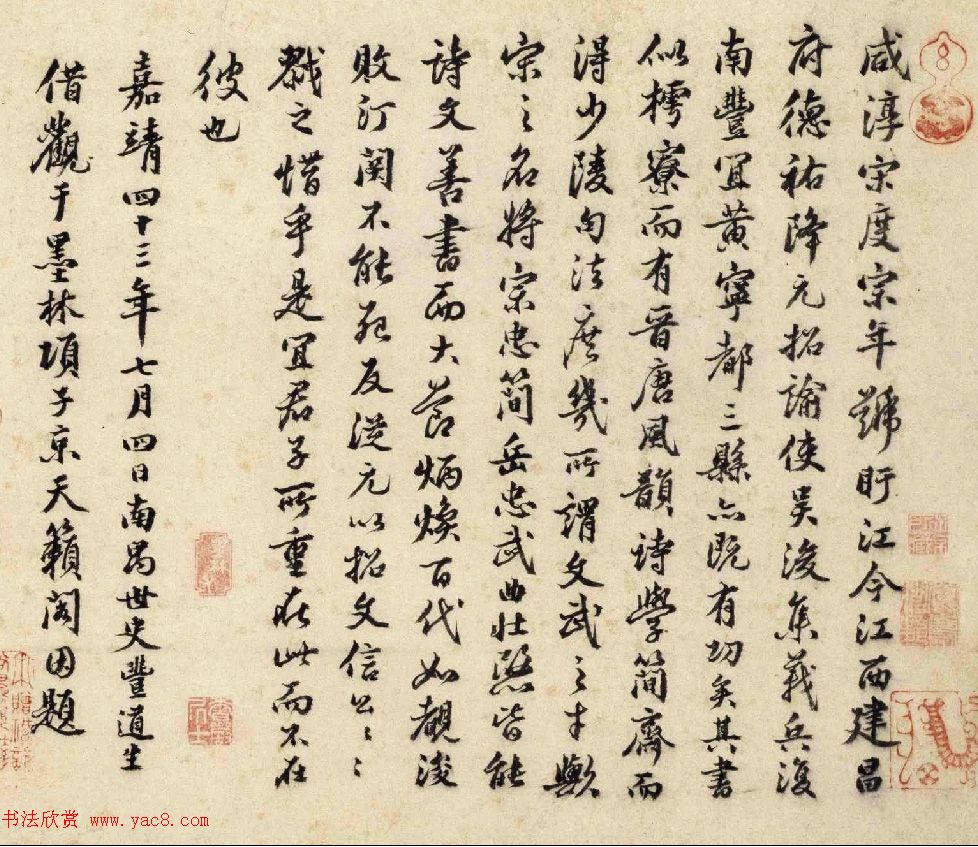 咸淳宋度宗年號盱江今江西建昌
府德祐降元招諭使吳浚集義兵復
南豐宜黃寧都三縣亦既有功矣其書
似樗寮而有晉唐風韻詩學簡齋而
得少陵句法庶幾所謂文武之才歟
宋之名將宗忠簡岳忠武曲壯愍皆能
詩文善書而大節炳煥百代如覩浚
敗汀關不能死反從元以招文信公〻
戮之惜乎是宜君子所重在此而不在
彼也
嘉靖四十三年七月四日南禺世史豐道生
借觀于墨林項子京天籟閣因題
书法欣赏 www.yac8.com